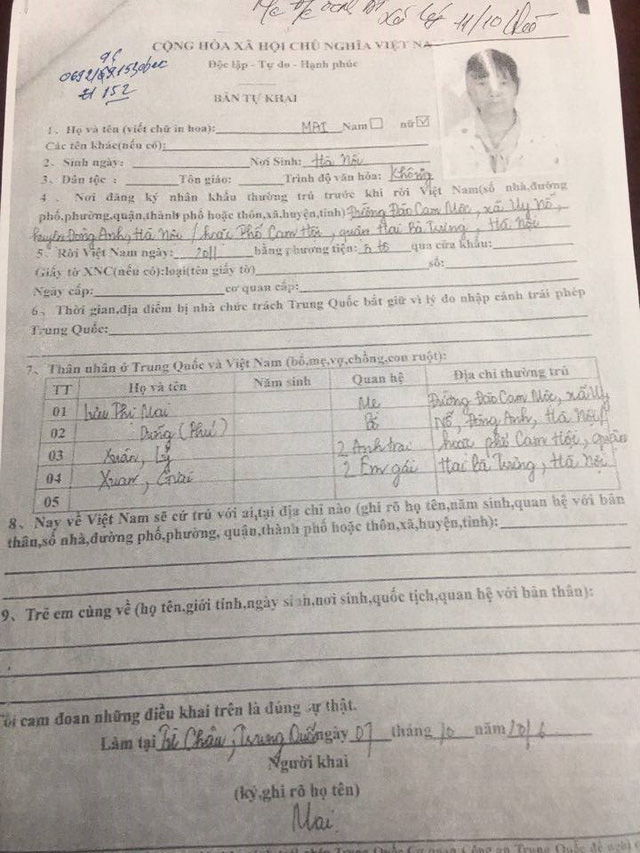 11/10
CỘNG HÒA XÃ HỘI CHỦ NGHĨA VIỆT NA
Độc lập - Tự do - Hạnh phúc
BẢN TỰ KHAI
1、Họ và tên (viết chữ in hoa): MAI Nam ☐ nữ ☑
Các tên khác(nếu có):
2、Sinh ngày: Nơi Sinh: Hà Nội
3、Dân tộc : Tôn giáo: Trình độ văn hóa: Không
4 、Nơi đăng ký nhân khẩu thường trú trước khi rời Việt Nam(số nhà,đường
phố,phường,quận,thành phố hoặc thôn,xã,huyện,tỉnh) Đường Đào Cam Mộc, xã Uy Nỗ,
huyện Đông Anh, Hà Nội / hoặc Phố Cam Hội, quận Hai Bà Trưng, Hà Nội
5、Rời Việt Nam ngày: 2011 bằng phương tiện: ô tô qua cửa khẩu:
Giấy tờ XNC(nếu có):loại(tên giấy tờ) số:
Ngày cấp: cơ quan cấp:
6、Thời gian,địa điểm bị nhà chức trách Trung Quốc bắt giữ vì lý do nhập cảnh trái phép
Trung Quốc:
7、Thân nhân ở Trung Quốc và Việt Nam (bố,mẹ,vợ,chồng,con ruột):
TT Họ và tên Năm sinh Quan hệ Địa chỉ thường trú
01 Lưu Phi Mai Mẹ Đường Đào Cam Mộc, xã Uy
02 Dũng (Phú) Bố Nỗ, Đông Anh, Hà Nội/
03 Xuân, Lý 2 Anh trai hoặc phố Cam Hội, quận
04 Xuan, Giai 2 Em gái Hai Bà Trưng, Hà Nội
05
8、Nay về Việt Nam sẽ cư trú với ai,tại địa chỉ nào (ghi rõ họ tên,năm sinh,quan hệ với bản
thân,số nhà,đường phố,phường, quận,thành phố hoặc thôn,xã,huyện,tỉnh):
9、Trẻ em cùng về (họ tên,giới tính,ngày sinh,nơi sinh,quốc tịch,quan hệ với bản thân):
Tôi cam đoan những điều khai trên là đúng sự thật.
Làm tại Châu, Trung Quốc ngày 07 tháng 10 năm 2016
Người khai
(ký,ghi rõ họ tên)
Mai